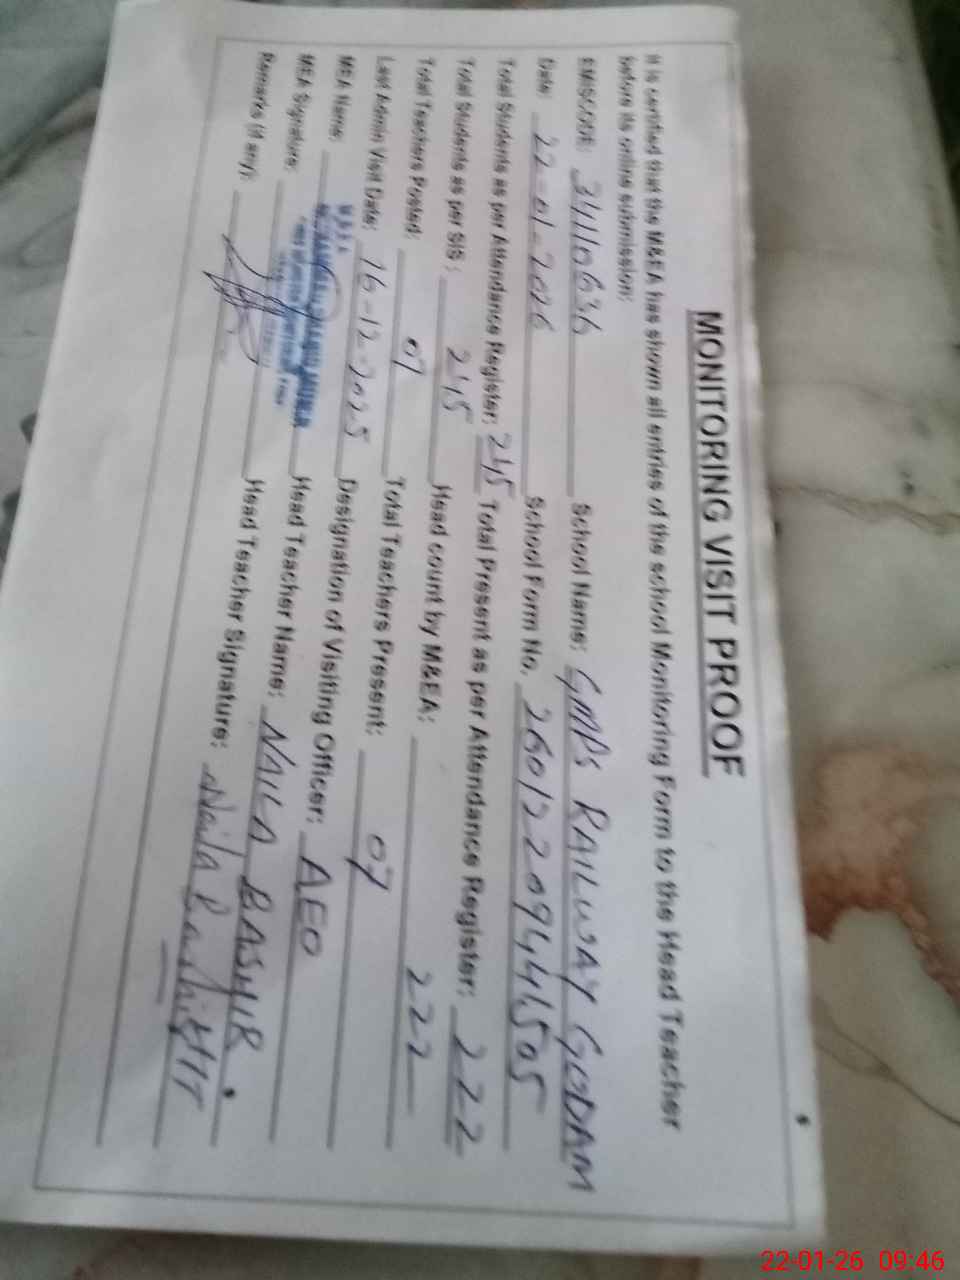 MONITORING VISIT PROOF
It is certified that the M&EA has shown all entries of the school Monitoring Form to the Head Teacher
before its online submission:
EMISCODE: 34110636 School Name: GMPS RAILWAY GODAM
Date: 22-01-2026 School Form No. 2601220944505
Total Students as per Attendance Register: 245 Total Present as per Attendance Register: 222
Total Students as per SIS: 245 Head count by M&EA: 222
Total Teachers Posted: 07 Total Teachers Present: 07
Last Admin Visit Date: 16-12-2025 Designation of Visiting Officer: AEO
MEA Name: Head Teacher Name: NAILA BASHIR
MEA Signature: Head Teacher Signature: Naila Bashir
Remarks (if any):
22-01-26 09:46